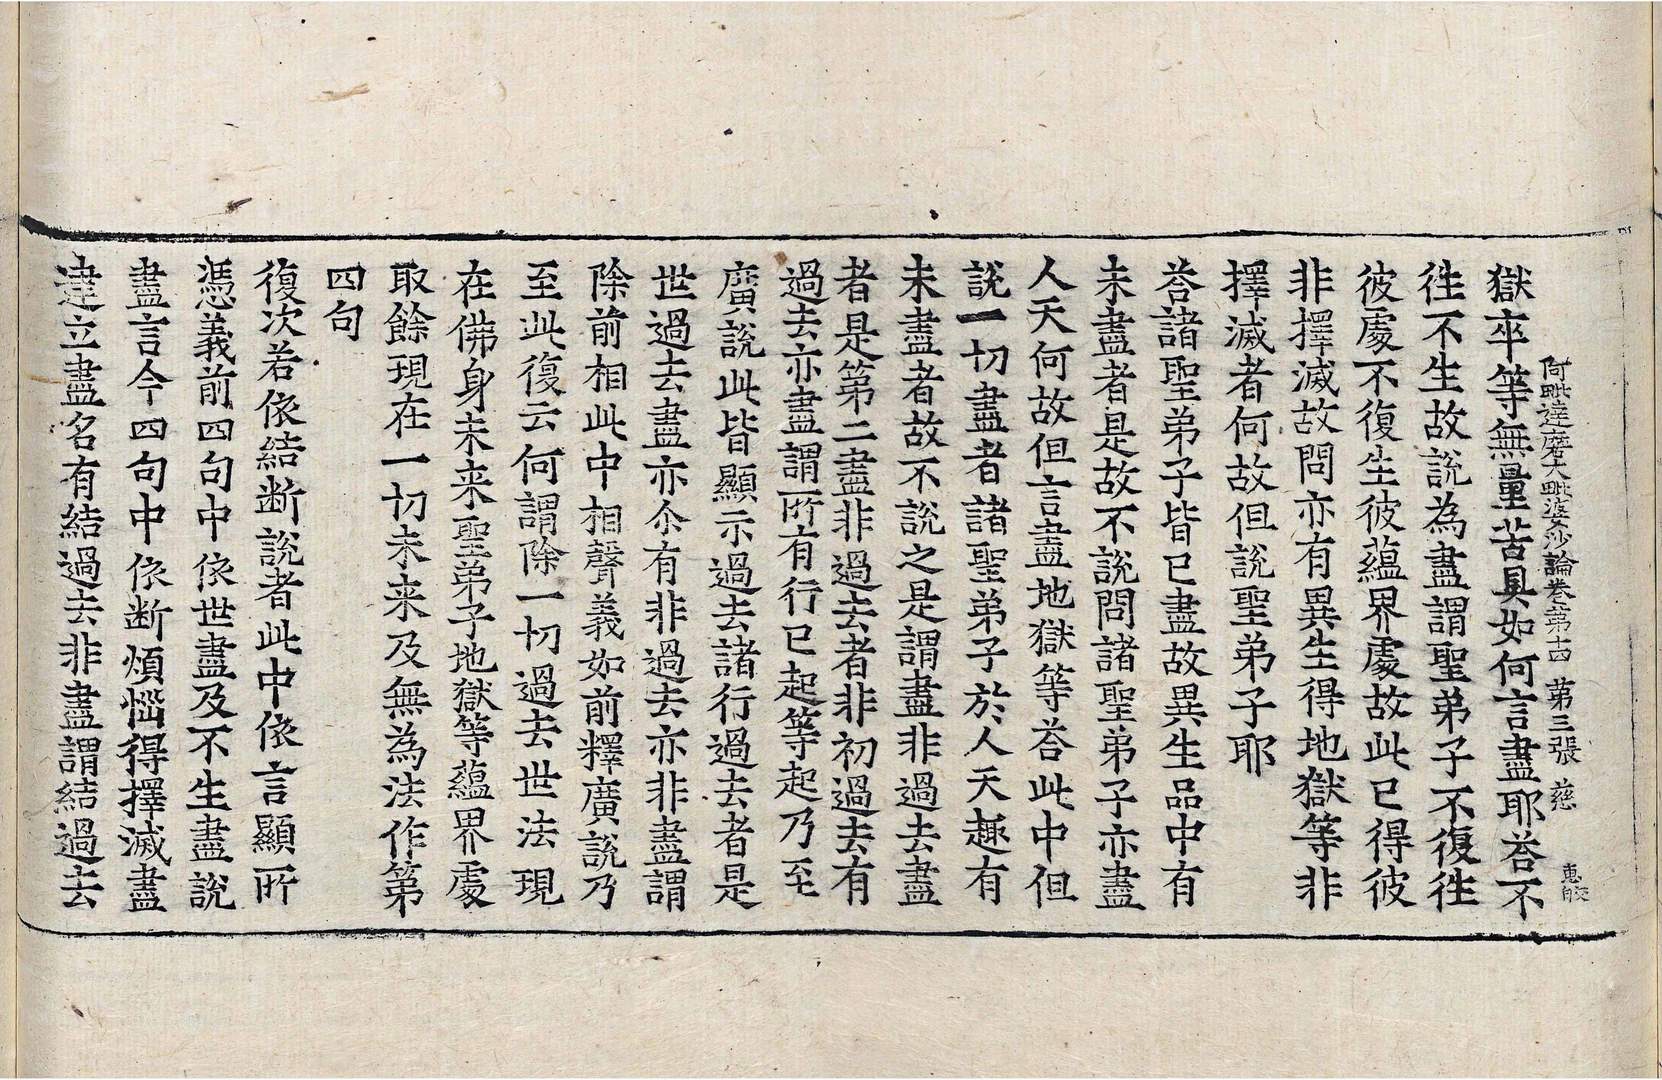 阿毗達磨大毗婆沙論卷第六十四 第三張 慈 惠皎
獄卒等無量苦具如何言盡耶荅不
徃不生故說為盡謂聖弟子不復徃
彼處不復生彼蘊界處故此已得彼
非擇滅故問亦有異生得地獄等非
擇滅者何故但說聖弟子耶
荅諸聖弟子皆已盡故異生品中有
未盡者是故不說問諸聖弟子亦盡
人天何故但言盡地獄等荅此中但
說一切盡者諸聖弟子於人天趣有
未盡者故不說之是謂盡非過去盡
者是第二盡非過去者非初過去有
過去亦盡謂所有行已起等起乃至
廣說此皆顯示過去諸行過去者是
世過去盡亦尒有非過去亦非盡謂
除前相此中相聲義如前釋廣說乃
至此復云何謂除一切過去世法現
在佛身未来聖弟子地獄等蘊界處
取餘現在一切未来及無為法作第
四句
復次若依結断說者此中依言顯所
憑義前四句中依世盡及不生盡說
盡言今四句中依断煩惱得擇滅盡
建立盡名有結過去非盡謂結過去